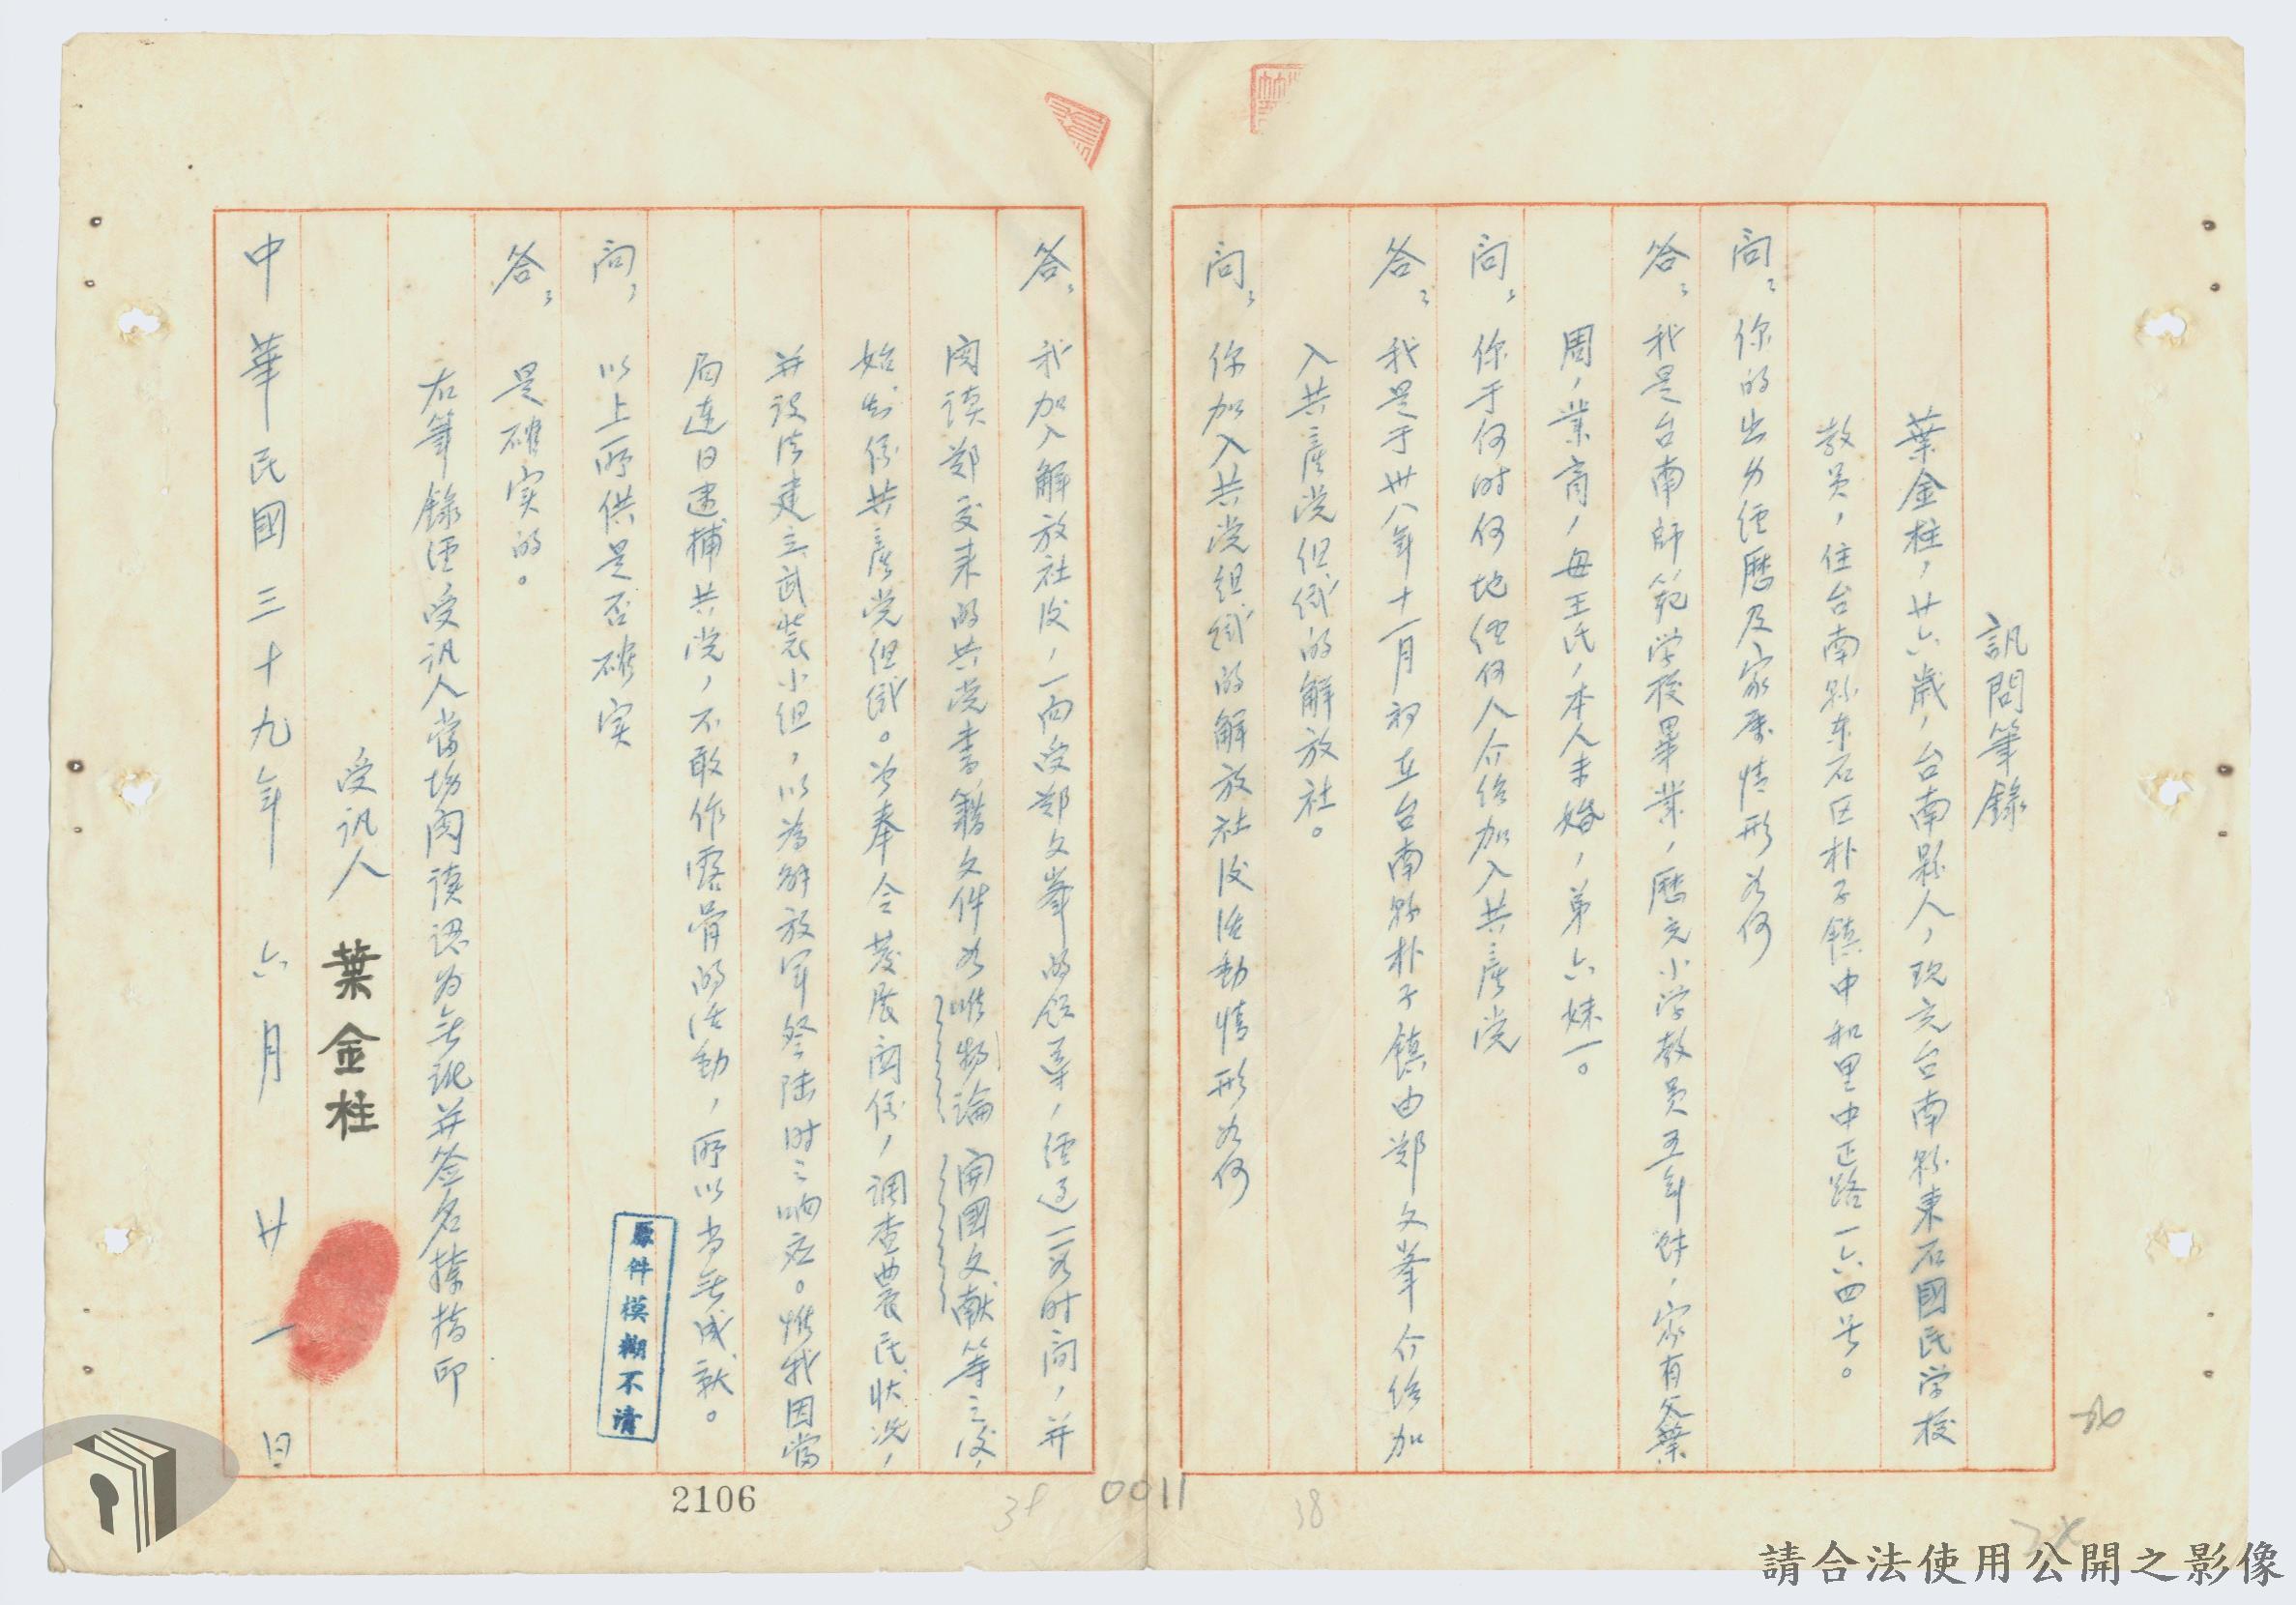 訊問筆錄
葉金柱，廿六歲，台南縣人，現充台南縣東石國民学校
教員，住台南縣东石区朴子鎮中和里中正路一六四号。
問：你的出身經歷及家庭情形如何
答：我是台南師範学校畢業，歷充小学教員五年餘，家有父葉
周，業商，母王氏，本人未婚，弟六妹一。
問：你于何时何地經何人介绍加入共產党
答：我是于卅八年十一月初在台南縣朴子鎮由鄭文峯介绍加
入共產党组織的解放社。
問：你加入共党组織的解放社後活動情形如何
答：我加入解放社後，一向受鄭文峯的领導，經过一段时间，并
閱读鄭交来的共党書籍文件如唯物論開國文献等之後，
始知係共產党组織。曾奉令发展関係，调查農民状况，
并设法建立武装小组，以為解放军登陆时之响应。惟我因當
局連日逮捕共党，不敢作露骨的活動，所以尚無成就。
問：以上所供是否確实
答：是確实的。
右筆錄經受讯人當场閱读認为無訛并签名捺指印
受讯人 葉金柱
中華民國三十九年六月廿一日
原件模糊不清
2106
0011
38
請合法使用公開之影像